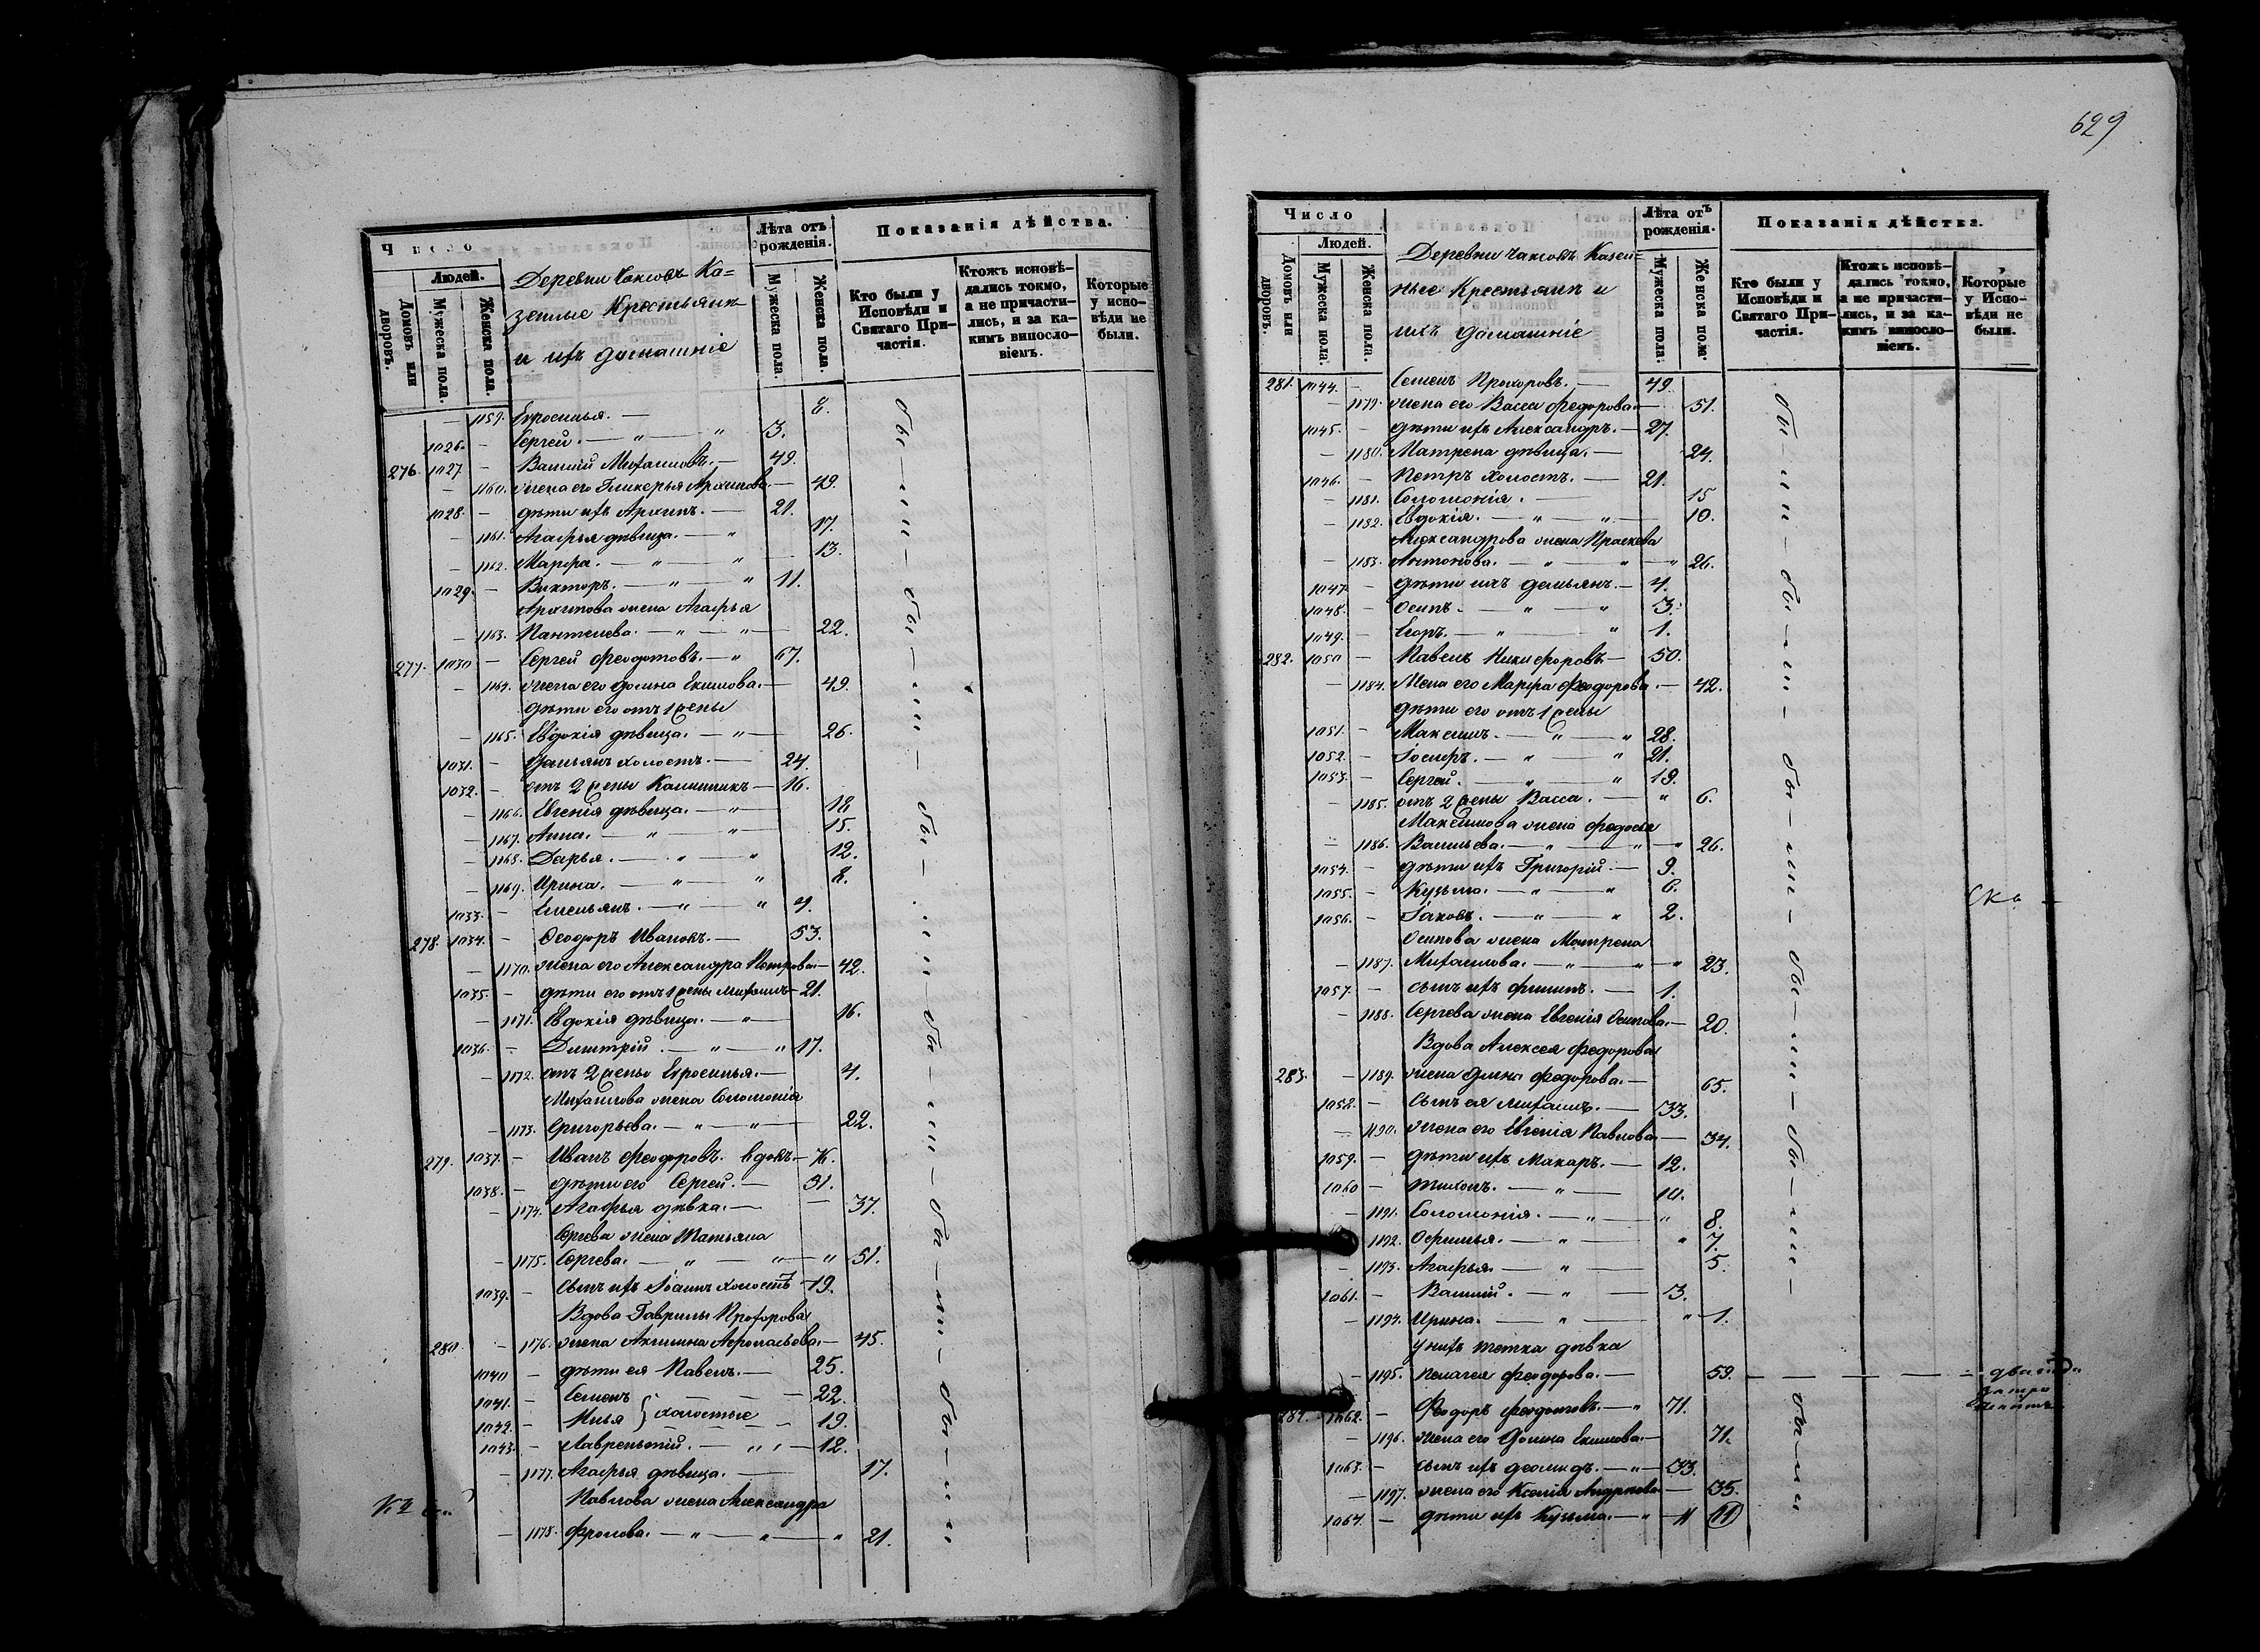 Число
Людей.
Домовъ или дворовъ.
Мужеска пола.
Женска пола.
Деревни Чаксовъ Ка=
зенные Крестьянъ
и ихъ домашніе
Лѣта отъ рожденія.
Мужеска пола.
Женска пола.
Показанія дѣйства.
Кто были у Исповѣди и Святаго Причастія.
Ктожъ исповѣдались токмо, а не причастились, и за какимъ винословіемъ.
Которые у исповѣди не были.
— 1159. Евросинья. — 8.
1026. — Сергей. — " — " 3.
276. 1027. — Василій Михаиловъ. — 49.
— 1160. жена его Гликерья Архипова — 49.
1028. — дѣти ихъ Архипъ. — 21.
— 1161. Агафья дѣвица. — " 17.
— 1162. Марфа. — " — " 13.
1029. — Викторъ. — " — " 11.
Архипова жена Агафья
— 1163. Пантелева. — " — " — 22.
277. 1030 — Сергей Феодотовъ. — " 67.
— 1164. жена его Домна Екимова. — 49.
дѣти его отъ 1 жены
— 1165. Евдокія дѣвица. — " — 26.
1031. — Демьянъ холостъ. — 24.
1032. — отъ 2 жены Калинникъ — 16.
— 1166. Евгенія дѣвица. — " — 18.
— 1167. Анна. — " — " — 15.
— 1168. Дарья. — " — " 12.
— 1169. Ирина. — " — " 8.
1033. — Емельянъ. — " — " 4.
278. 1034. — Феодоръ Ивановъ. — 53.
— 1170. жена его Александра Петрова — 42.
1035. — дѣти его отъ 1 жены Михаилъ — 21.
— 1171. Евдокія дѣвица. — " — 16.
1036. — Димитрій. — " — " 17.
— 1172. отъ 2 жены Евросинья. — 4.
Михаилова жена Соломонія
— 1173. Григорьева. — " — " — 22.
279. 1037. — Иванъ Феодоровъ. вдовъ — 76.
1038. — дѣти его Сергей. — 51.
— 1174. Агафья дѣвка. — — 37.
Сергева жена Татьяна
— 1175. Сергева. — " — " — " 51.
1039. — сынъ ихъ Іоаннъ холостъ — 19.
Вдова Гаврилы Прохорова
280. — 1176. жена Акилина Афонасьева. — 45.
1040 — дѣти ея Павелъ. — 25.
1041. — Семенъ — 22.
1042. — Илья } холостые — 19.
1043. — Лаврентій. — " — 12.
— 1177. Агафья дѣвица. — 17.
Павлова жена Александра
— 1178. Фролова. — " — " — " 21.
бы — ли — бы — ли — бы — ли — бы — ли — бы — ли — бы — ли
629
Число
Людей.
Домовъ или дворовъ.
Мужеска пола.
Женска пола.
Деревни Чаксовъ Казен=
ные Крестьянъ и
ихъ домашніе
Лѣта отъ рожденія.
Мужеска пола.
Женска пола.
Показанія дѣйства.
Кто были у Исповѣди и Святаго Причастія.
Ктожъ исповѣдались токмо, а не причастились, и за какимъ винословіемъ.
Которые у Исповѣди не были.
281. 1044. — Семенъ Прохоровъ. — 49.
— 1179. жена его Васса Федорова — 51.
1045. — дѣти ихъ Александръ. — 27.
— 1180. Матрена дѣвица. — 24.
1046. — Петръ холостъ. — 21.
— 1181. Соломонія. — 15
— 1182. Евдокія. — " — " — 10.
Александрова жена Праскева
— 1183. Антонова. — " — " — " 26.
1047. — дѣти ихъ Демьянъ. — 4.
1048. — Осипъ. — " — " 3.
1049. — Егоръ. — " — " 1.
282. 1050 — Павелъ Никифоровъ — 50.
— 1184. Жена его Марфа Феодорова. — 42.
дѣти его отъ 1 жены
1051. — Максимъ. — " — " 28.
1052. — Іосифъ. — " — " 21.
1053. — Сергей. — " — " 19.
— 1185. отъ 2 жены Васса. — " 6.
Максимова жена Федосья
— 1186. Васильева. — " — " — " 26.
1054. — дѣти ихъ Григорій. — 9.
1055. — Кузьма. — " — " 6.
1056. — Іаковъ. — " — " 2.
Осипова жена Матрена
— 1187. Михаилова. — " — " — " 23.
1057. — сынъ ихъ Филипъ. — 1.
— 1188. Сергева жена Евгенія Осипова. — 20.
Вдова Алексея Федорова
283. — 1189. жена Домна Федорова. — 65.
1058. — Сынъ ея Михаилъ. — 33.
— 1190. жена его Евгенія Павлова — 34.
1059. — дѣти ихъ Макаръ. — 12.
1060 — Тихонъ. — " — 10.
— 1191. Соломонія. — " — " 8.
1192. Офимья. — " — " 7.
— 1193. Агафья. — " — 5.
1061. — Василій. — " — 3.
— 1194. Ирина. — " — " 1.
У нихъ тетка дѣвка
— 1195. Пелагея Феодорова. — 59.
284. 1062. — Феодоръ Феодотовъ. — " 71.
— 1196. жена его Домна Екимова. — 71.
1063. — сынъ ихъ Деомидъ. — " — 33.
— 1197. жена его Ксенія Андреева — 35.
1064. — дѣти ихъ Кузьма. — " — 11 (11)
бы — ли — бы — ли — бы — ли — бы — ли — бы — ли — бы — ли